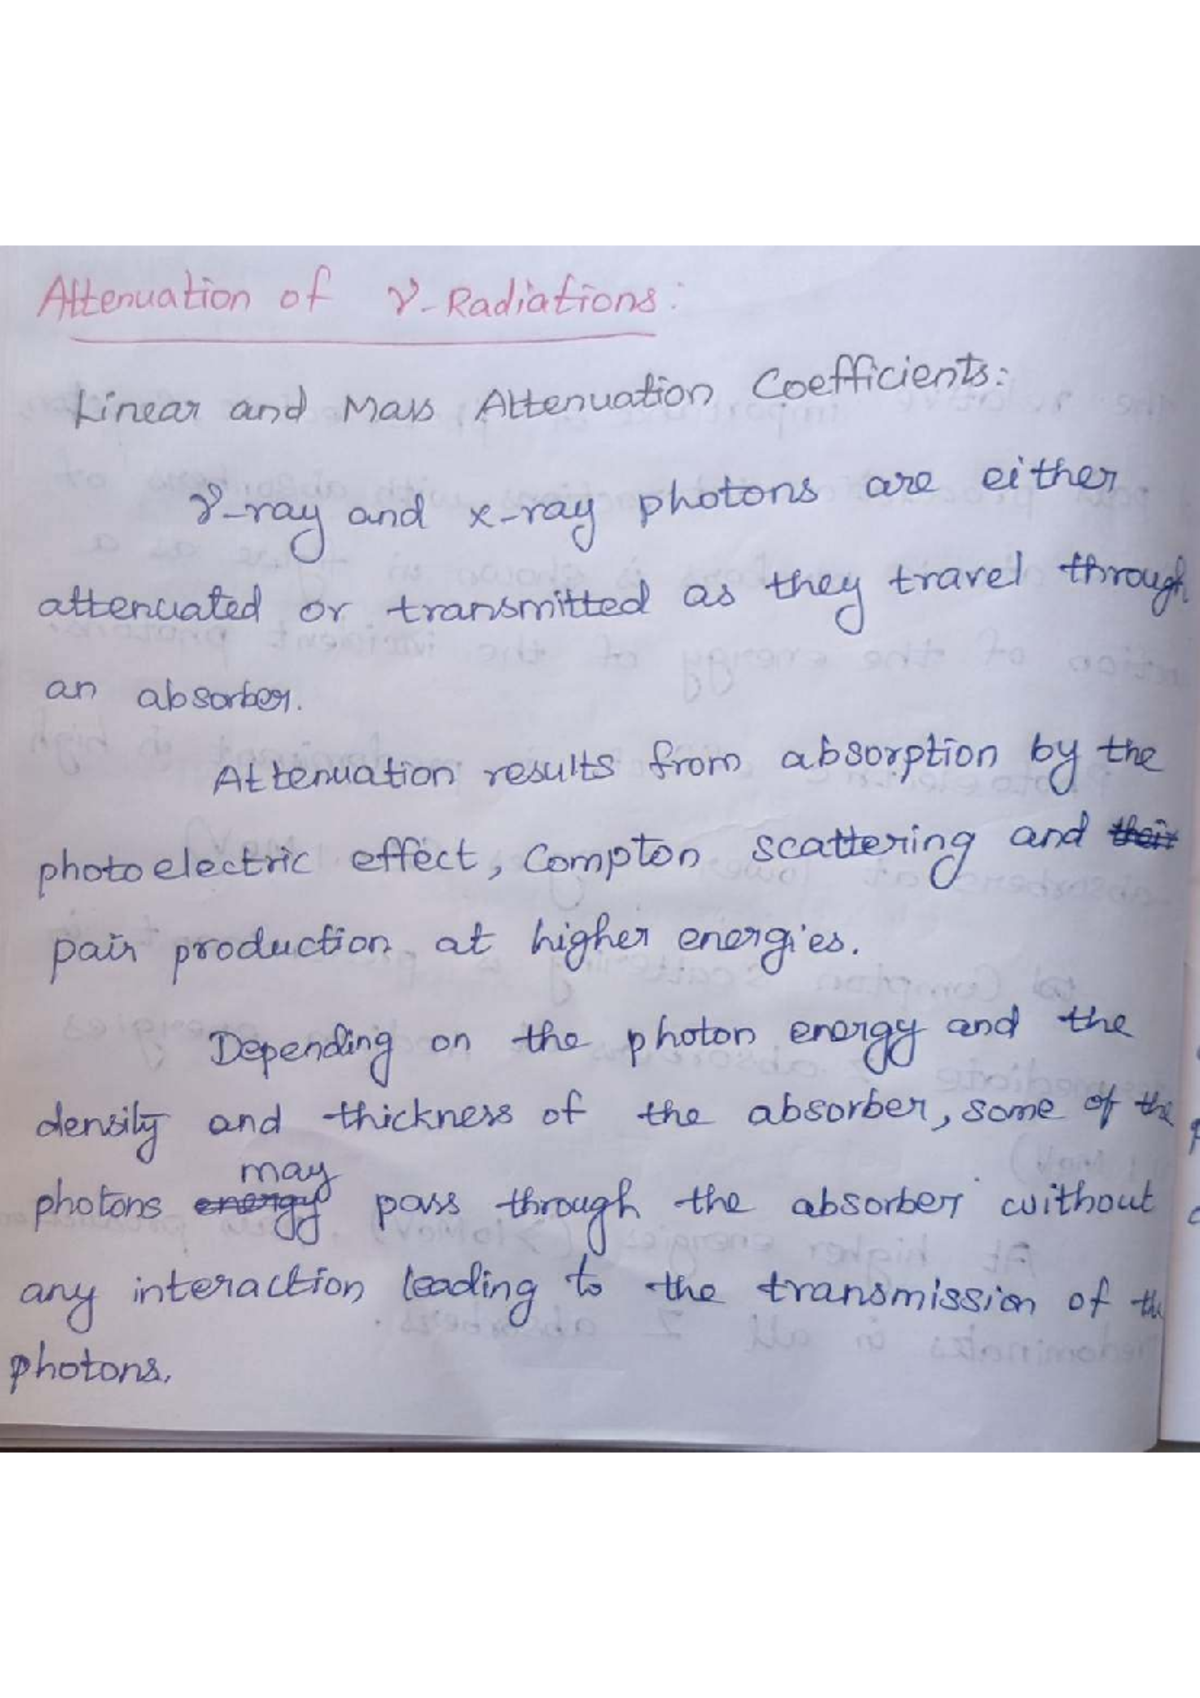 Attenuation of γ-Radiations:
Linear and Mass Attenuation Coefficients:
γ-ray and x-ray photons are either
attenuated or transmitted as they travel through
an absorber.
Attenuation results from absorption by the
photoelectric effect, Compton scattering and ~~their~~
pair production at higher energies.
Depending on the photon energy and the
density and thickness of the absorber, some of the
may
photons ~~energy~~ pass through the absorber without
any interaction leading to the transmission of the
photons.